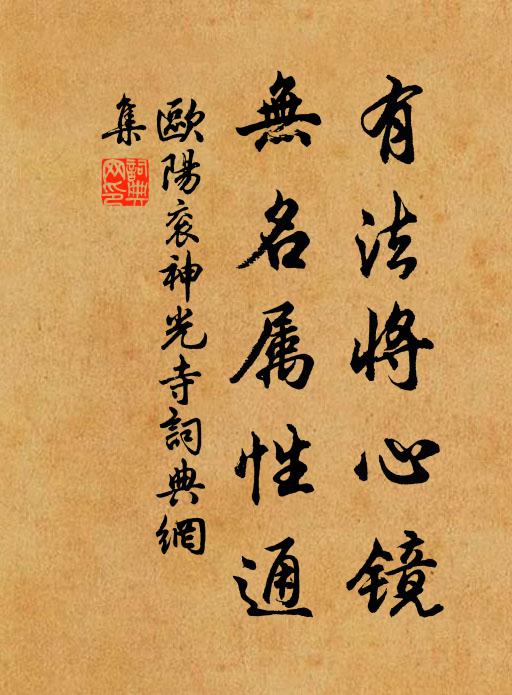 有法將心镜
無名属性通
歐陽衮神光寺詞典網
集
詞典
网印